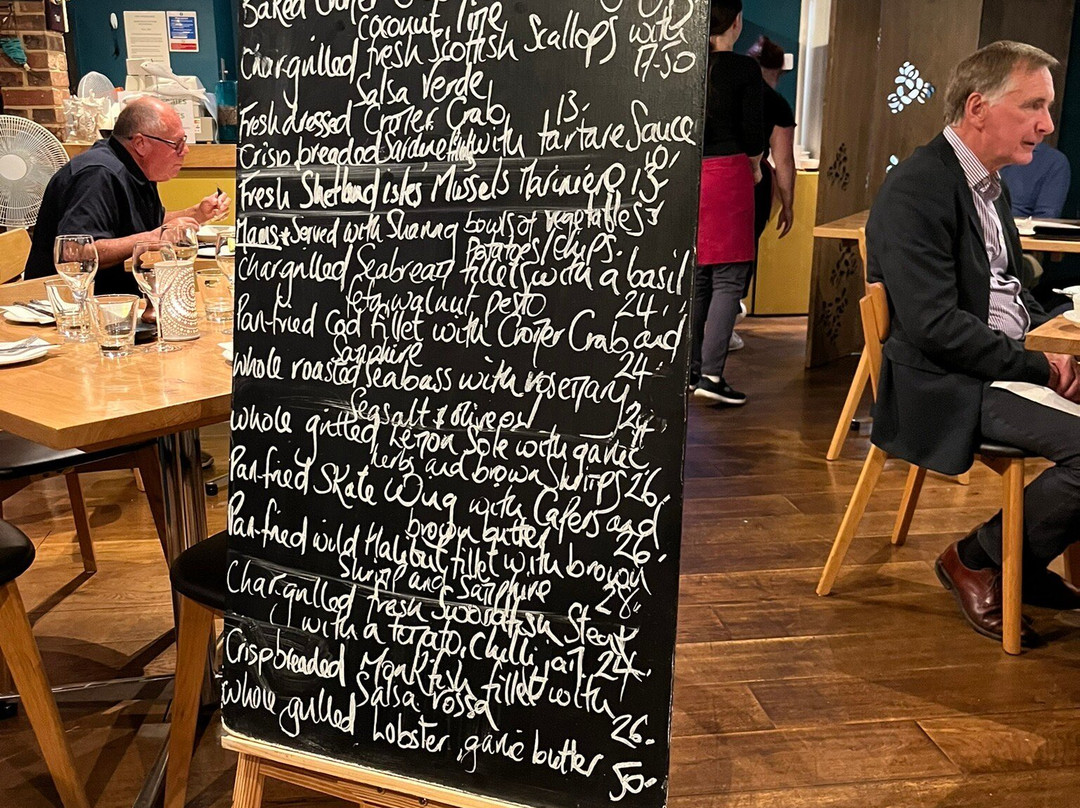 Baked Cromer
coconut, lime
Chargrilled fresh Scottish Scallops with
Salsa Verde 17-50
Fresh dressed Cromer Crab 13.
Crisp breaded Sardine fillets with tartare Sauce
10.
Fresh Shetland isles Mussels Mariniere 13-
Mains * Served with Sharing bowls of vegetables &
Potatoes/chips.
Chargrilled Seabream fillets with a basil
feta, walnut pesto 24.
Pan-fried Cod fillet with Cromer Crab and
Samphire 24.
Whole roasted seabass with rosemary
Seasalt & olive oil 24
Whole grilled Lemon Sole with garlic
herbs and brown Shrimps 26.
Pan-fried Skate Wing with Capers and
brown butter 26.
Pan-fried wild Halibut fillet with brown
Shrimp and Samphire 28..
Chargrilled fresh Swordfish Steak
with a tomato, Chilli, 24.
Crisp breaded Monkfish fillet with
Salsa rossa 26.
Whole grilled Lobster, garlic butter 50-